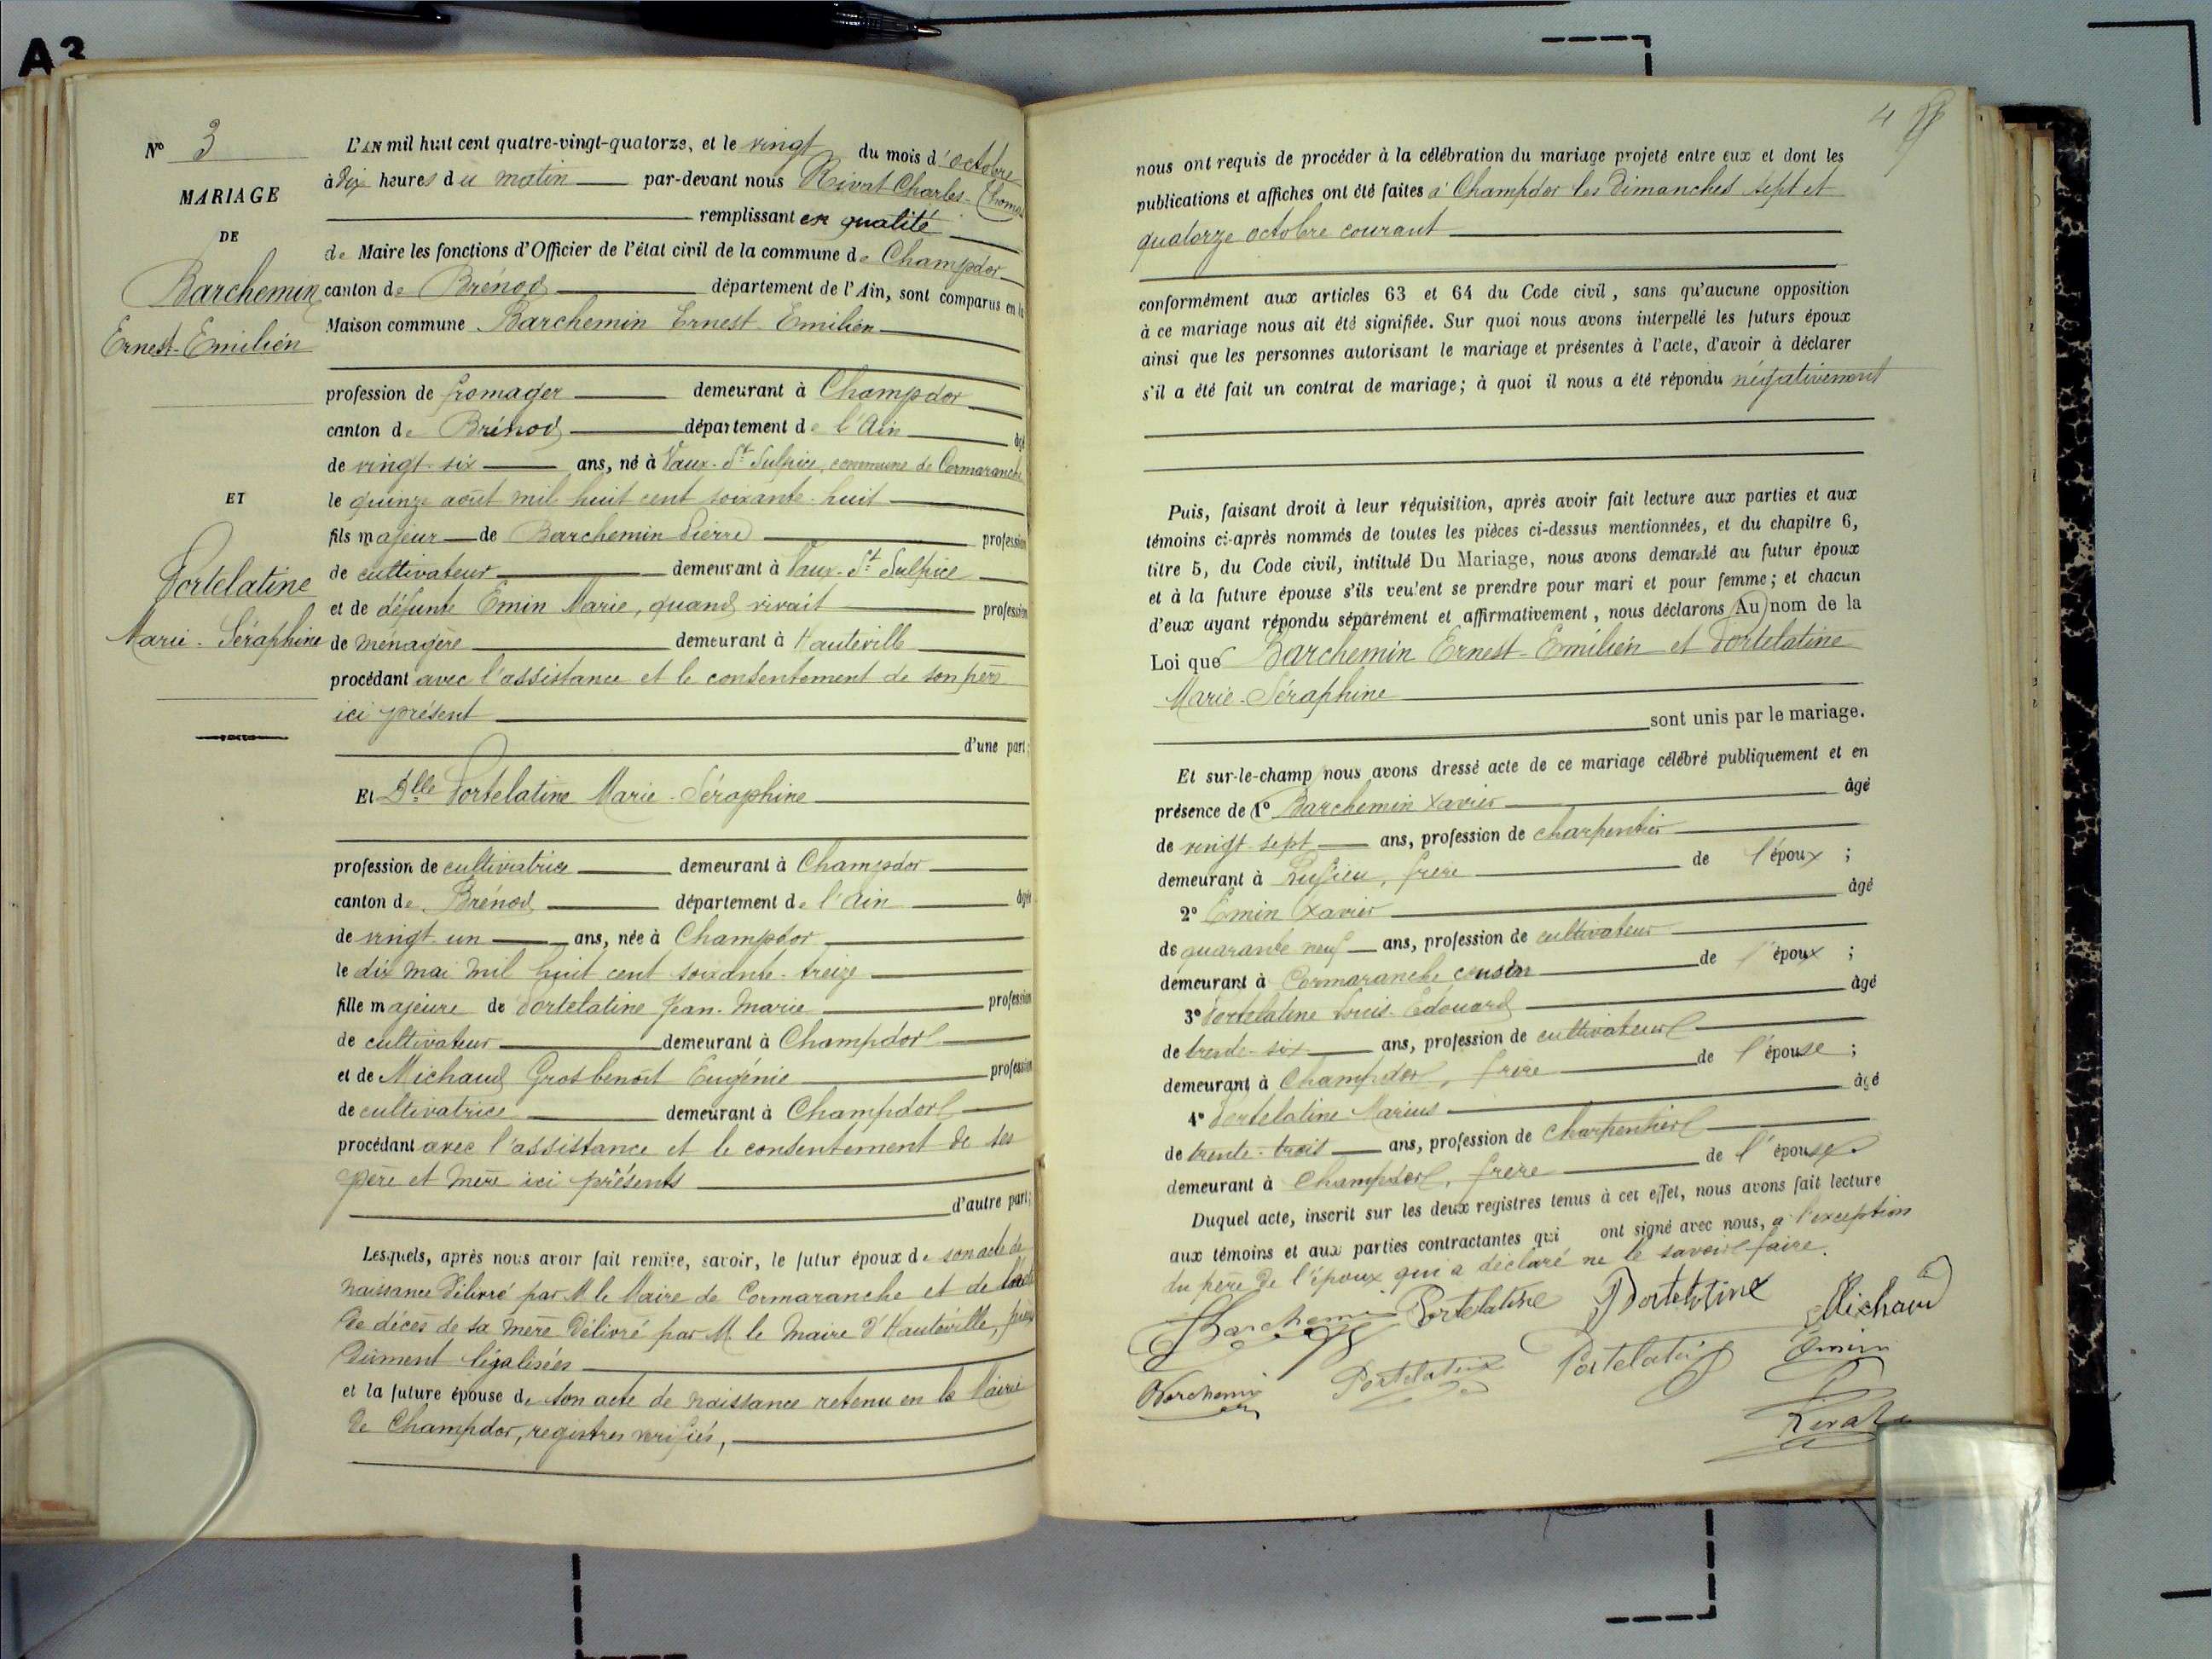 A3
N° 3
MARIAGE
DE
Barchemin
Ernest-Emilien
ET
Portelatine
Marie-Séraphine
L'AN mil huit cent quatre-vingt-quatorze, et le vingt du mois d'octobre
à dix heures du matin par-devant nous Rivat Charles-Thomas
remplissant en qualité
de Maire les fonctions d'Officier de l'état civil de la commune de Champdor
canton de Brénod département de l'Ain, sont comparus en la
Maison commune Barchemin Ernest-Emilien
profession de fromager demeurant à Champdor
canton de Brénod département de l'Ain âgé
de vingt-six ans, né à Vaux-St Sulpice, commune de Cormaranche
le quinze août mil huit cent soixante-huit
fils majeur de Barchemin Pierre profession
de cultivateur demeurant à Vaux-St Sulpice
et de défunte Emin Marie, quand vivait profession
de ménagère demeurant à Hauteville
procédant avec l'assistance et le consentement de son père
ici présent
d'une part;
Et Dlle Portelatine Marie-Séraphine
profession de cultivatrice demeurant à Champdor
canton de Brénod département de l'Ain âgée
de vingt-un ans, née à Champdor
le dix mai mil huit cent soixante-treize
fille majeure de Portelatine Jean-Marie profession
de cultivateur demeurant à Champdor
et de Michaud Grosbenoit Eugénie profession
de cultivatrice demeurant à Champdor
procédant avec l'assistance et le consentement de ses
père et mère ici présents
d'autre part;
Lesquels, après nous avoir fait remise, savoir, le futur époux de son acte de
naissance délivré par M le Maire de Cormaranche et de l'acte
de décès de sa mère délivré par M. le Maire d'Hauteville,
dûment légalisées
et la future épouse de son acte de naissance retenu en la Mairie
de Champdor, registres vérifiés,
4
nous ont requis de procéder à la célébration du mariage projeté entre eux et dont les
publications et affiches ont été faites à Champdor les dimanches sept et
quatorze octobre courant
conformément aux articles 63 et 64 du Code civil, sans qu'aucune opposition
à ce mariage nous ait été signifiée. Sur quoi nous avons interpellé les futurs époux
ainsi que les personnes autorisant le mariage et présentes à l'acte, d'avoir à déclarer
s'il a été fait un contrat de mariage; à quoi il nous a été répondu négativement
Puis, faisant droit à leur réquisition, après avoir fait lecture aux parties et aux
témoins ci-après nommés de toutes les pièces ci-dessus mentionnées, et du chapitre 6,
titre 5, du Code civil, intitulé Du Mariage, nous avons demandé au futur époux
et à la future épouse s'ils veulent se prendre pour mari et pour femme; et chacun
d'eux ayant répondu séparément et affirmativement, nous déclarons Au nom de la
Loi que Barchemin Ernest-Emilien et Portelatine
Marie-Séraphine
sont unis par le mariage.
Et sur-le-champ nous avons dressé acte de ce mariage célébré publiquement et en
présence de 1° Barchemin Xavier âgé
de vingt-sept ans, profession de charpentier
demeurant à Ruffieu, frère de l'époux;
2° Emin Xavier âgé
de quarante-neuf ans, profession de cultivateur
demeurant à Cormaranche cousin de l'époux;
3° Portelatine Louis-Edouard âgé
de trente-six ans, profession de cultivateur
demeurant à Champdor, frère de l'épouse;
4° Portelatine Marius âgé
de trente-trois ans, profession de charpentier
demeurant à Champdor, frère de l'épouse
Duquel acte, inscrit sur les deux registres tenus à cet effet, nous avons fait lecture
aux témoins et aux parties contractantes qui ont signé avec nous, à l'exception
du père de l'époux qui a déclaré ne le savoir faire.
Barchemin Portelatine Portelatine Michaud
Barchemin Portelatine Portelatine Emin
Rivat